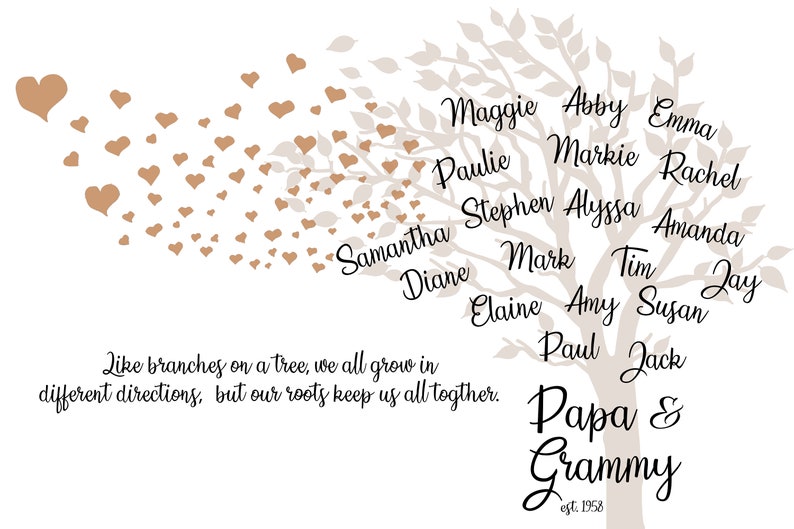 Maggie Abby Emma
Paulie Markie Rachel
Stephen Alyssa Amanda
Samantha Mark Tim Jay
Diane Elaine Amy Susan
Paul Jack
Like branches on a tree, we all grow in
different directions, but our roots keep us all togther.
Papa &
Grammy
est. 1958